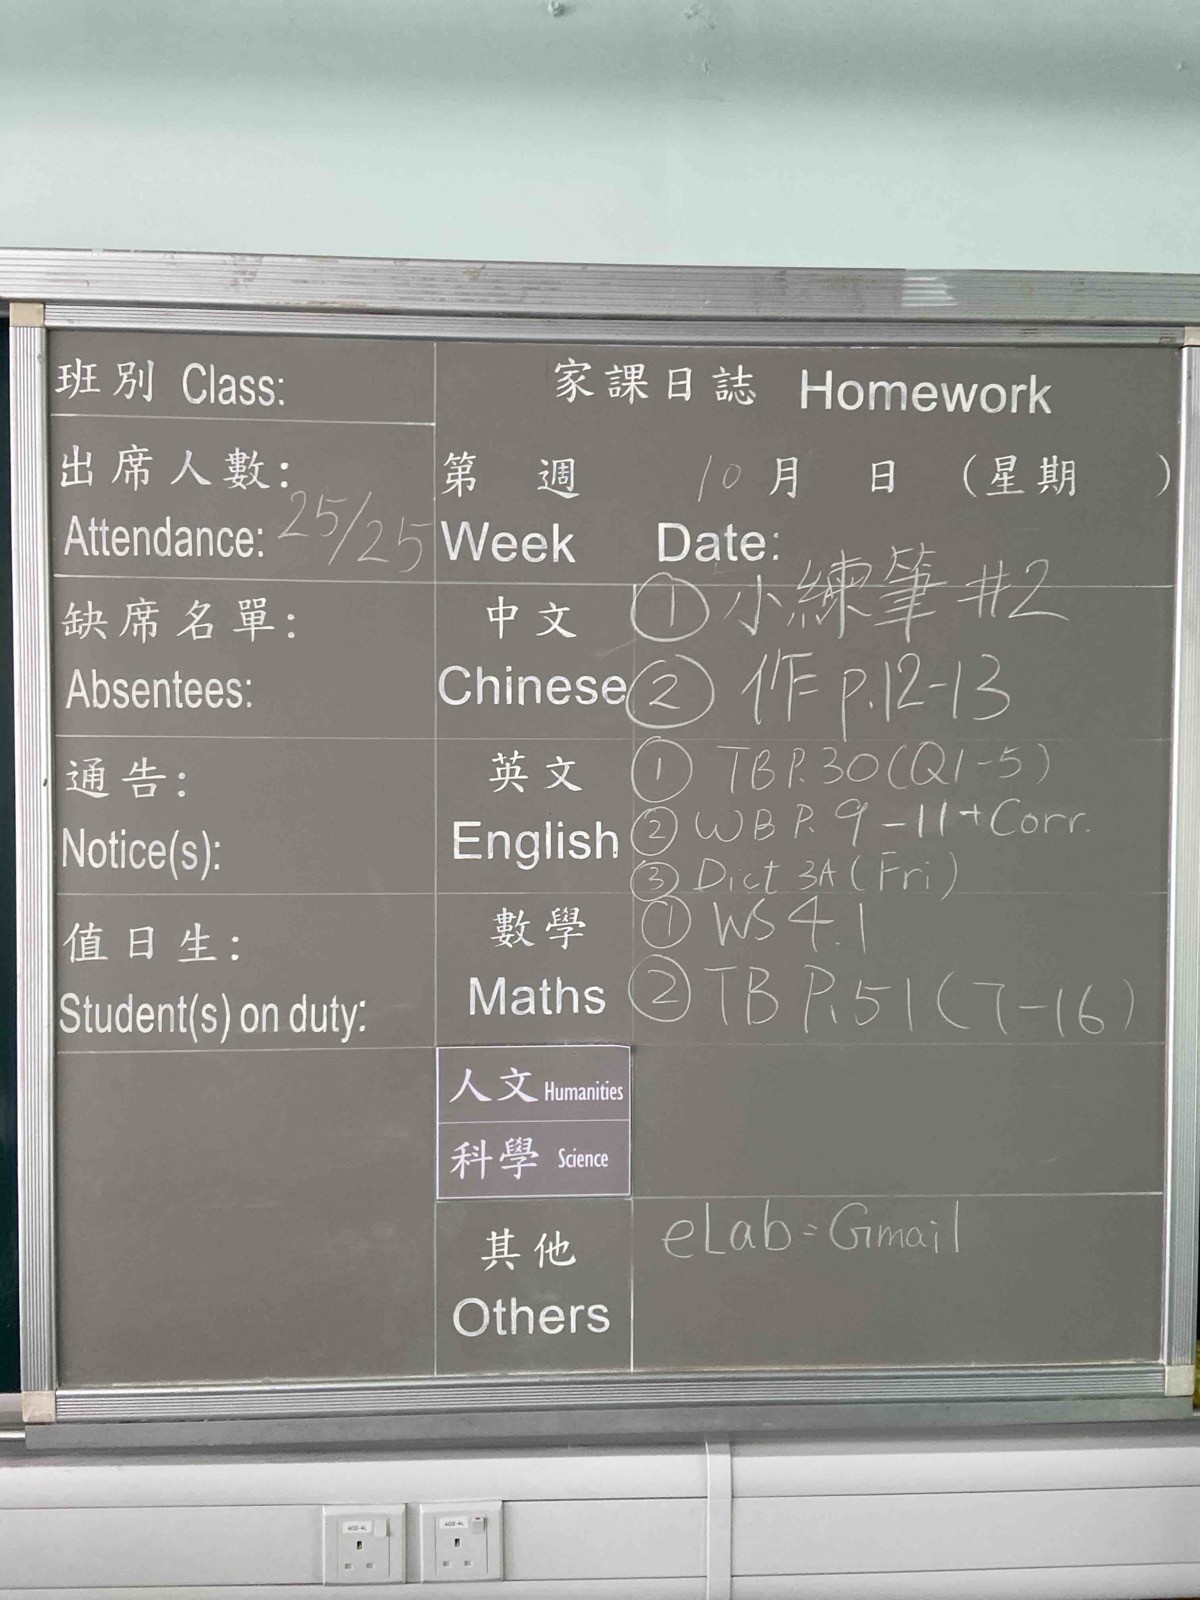 班別 Class:
家課日誌 Homework
出席人數:
Attendance: 25/25
第 週 10月 日 (星期 )
Week Date:
缺席名單:
Absentees:
中文
Chinese
① 小練筆 #2
② 作 p.12-13
通告:
Notice(s):
英文
English
① TB P.30 (Q1-5)
② WB P.9-11 + Corr.
③ Dict 3A (Fri)
值日生:
Student(s) on duty:
數學
Maths
① WS 4.1
② TB P.51 (7-16)
人文 Humanities
科學 Science
其他
Others
eLab = Gmail